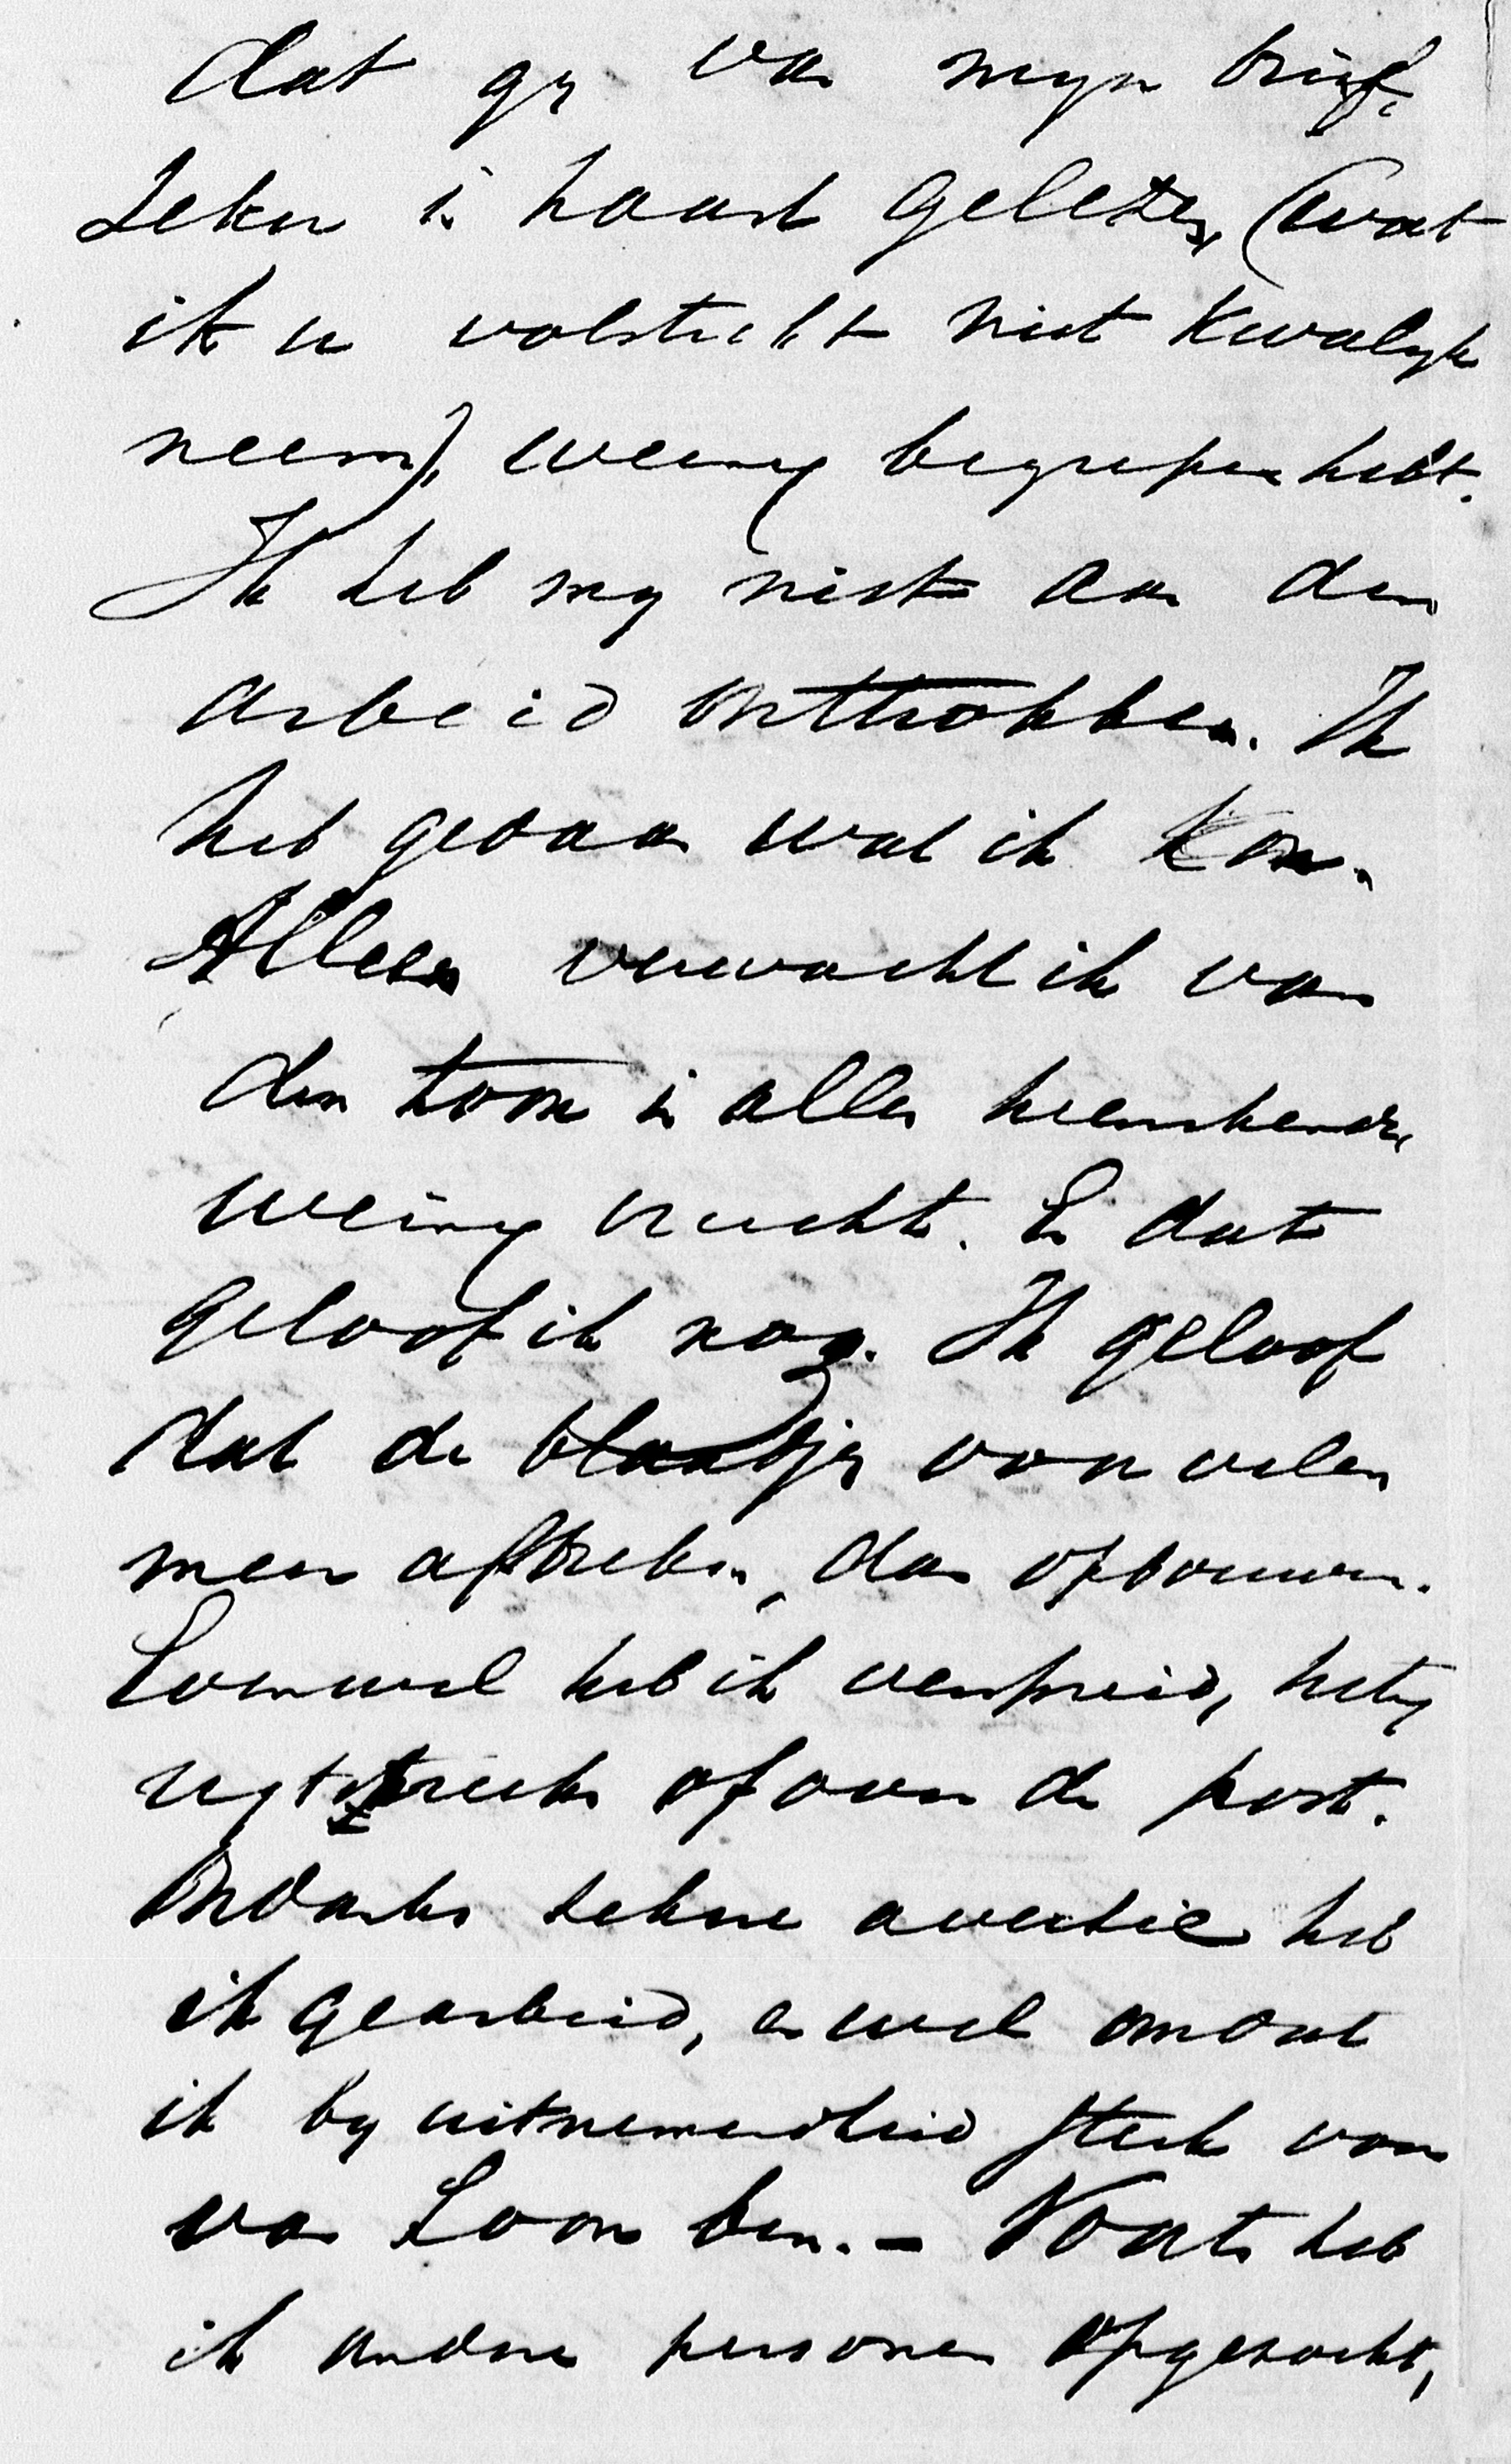 dat gy van myn brief,
zeker in haast gelezen, (wat
ik u volstrekt niet kwalyk
neem), weinig begrepen hebt.
Ik heb my niet aan den
arbeid onttrokken. Ik
heb gedaan wat ik kon.
Alleen verwacht ik van
den toon in alles heerschende
weinig vrucht. En dat
geloof ik nog. Ik geloof
dat de blaadjes voor velen
meer afbreken, dan opbouwen.
Evenwel heb ik verspreid, hetzy
regtstreeks of over de post.
Ondanks zekere aversie heb
ik gearbeid, en wel omdat
ik by uitnemendheid sterk voor
van Loon ben. – Voorts heb
ik andere personen opgezocht,